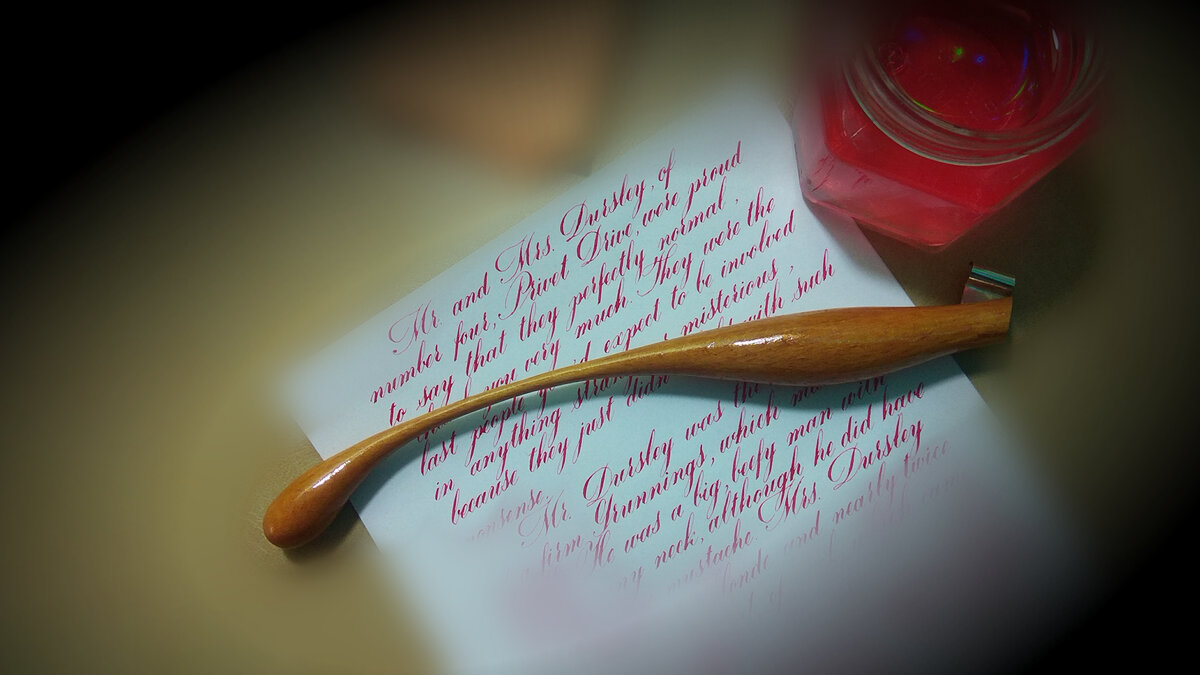 Mr. and Mrs. Dursley, of
number four, Privet Drive, were proud
to say that they perfectly normal,
you very much. They were the
last people expect to be involved
in anything misterious,
because they just with such
nonsense.
Mr. Dursley was the
firm Grunnings, which
He was a big, beefy man with
neck, although he did have
mustache. Mrs. Dursley
and nearly twice